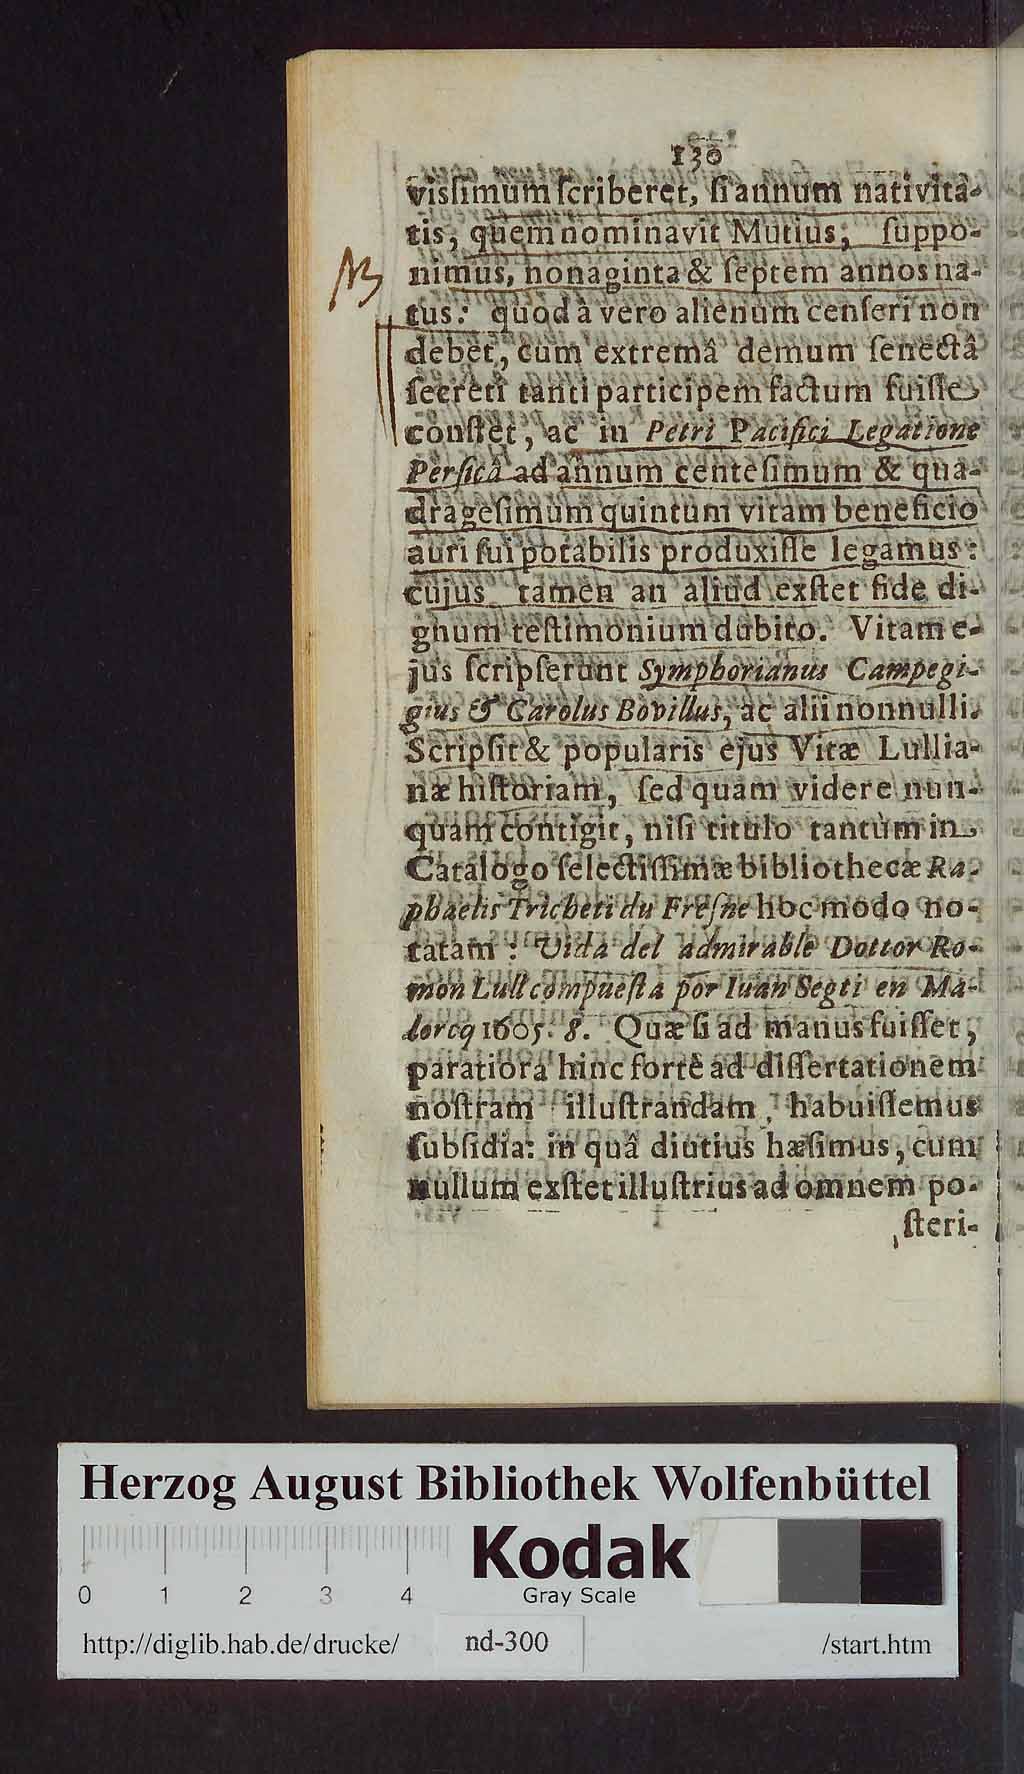 130
vissimum ſcriberet, ſi annum nativita-
tis, quem nominavit Mutius, ſuppo-
nimus, nonaginta & ſeptem annos na-
NB
tus: quod à vero alienum cenſeri non
debet, cum extremâ demum ſenectâ
ſecreti tanti participem factum fuiſſe
conſtet, ac in Petri Pacifici Legatione
Perſicâ ad annum centeſimum & qua-
drageſimum quintum vitam beneficio
auri ſui potabilis produxiſſe legamus:
cujus tamen an aliud exſtet fide di-
gnum teſtimonium dubito. Vitam e-
jus ſcripſerunt Symphorianus Campegi-
gius & Carolus Bovillus, ac alii nonnulli.
Scripſit & popularis ejus Vitæ Lullia-
næ hiſtoriam, ſed quam videre nun-
quam contigit, niſi titulo tantùm in
Catalogo ſelectiſſimæ bibliothecæ Ra-
phaelis Tricheti du Freſne hoc modo no-
tatam: Vida del admirable Dottor Ro-
mon Lull compueſta por Iuan Segti en Ma-
lorcq 1605. 8. Quæ ſi ad manus fuiſſet,
paratiora hinc fortè ad diſſertationem
noſtram illuſtrandam, habuiſſemus
ſubſidia: in quâ diutius hæſimus, cum
nullum exſtet illuſtrius ad omnem po-
ſteri-
Herzog August Bibliothek Wolfenbüttel
Kodak
Gray Scale
0 1 2 3 4
http://diglib.hab.de/drucke/ nd-300 /start.htm